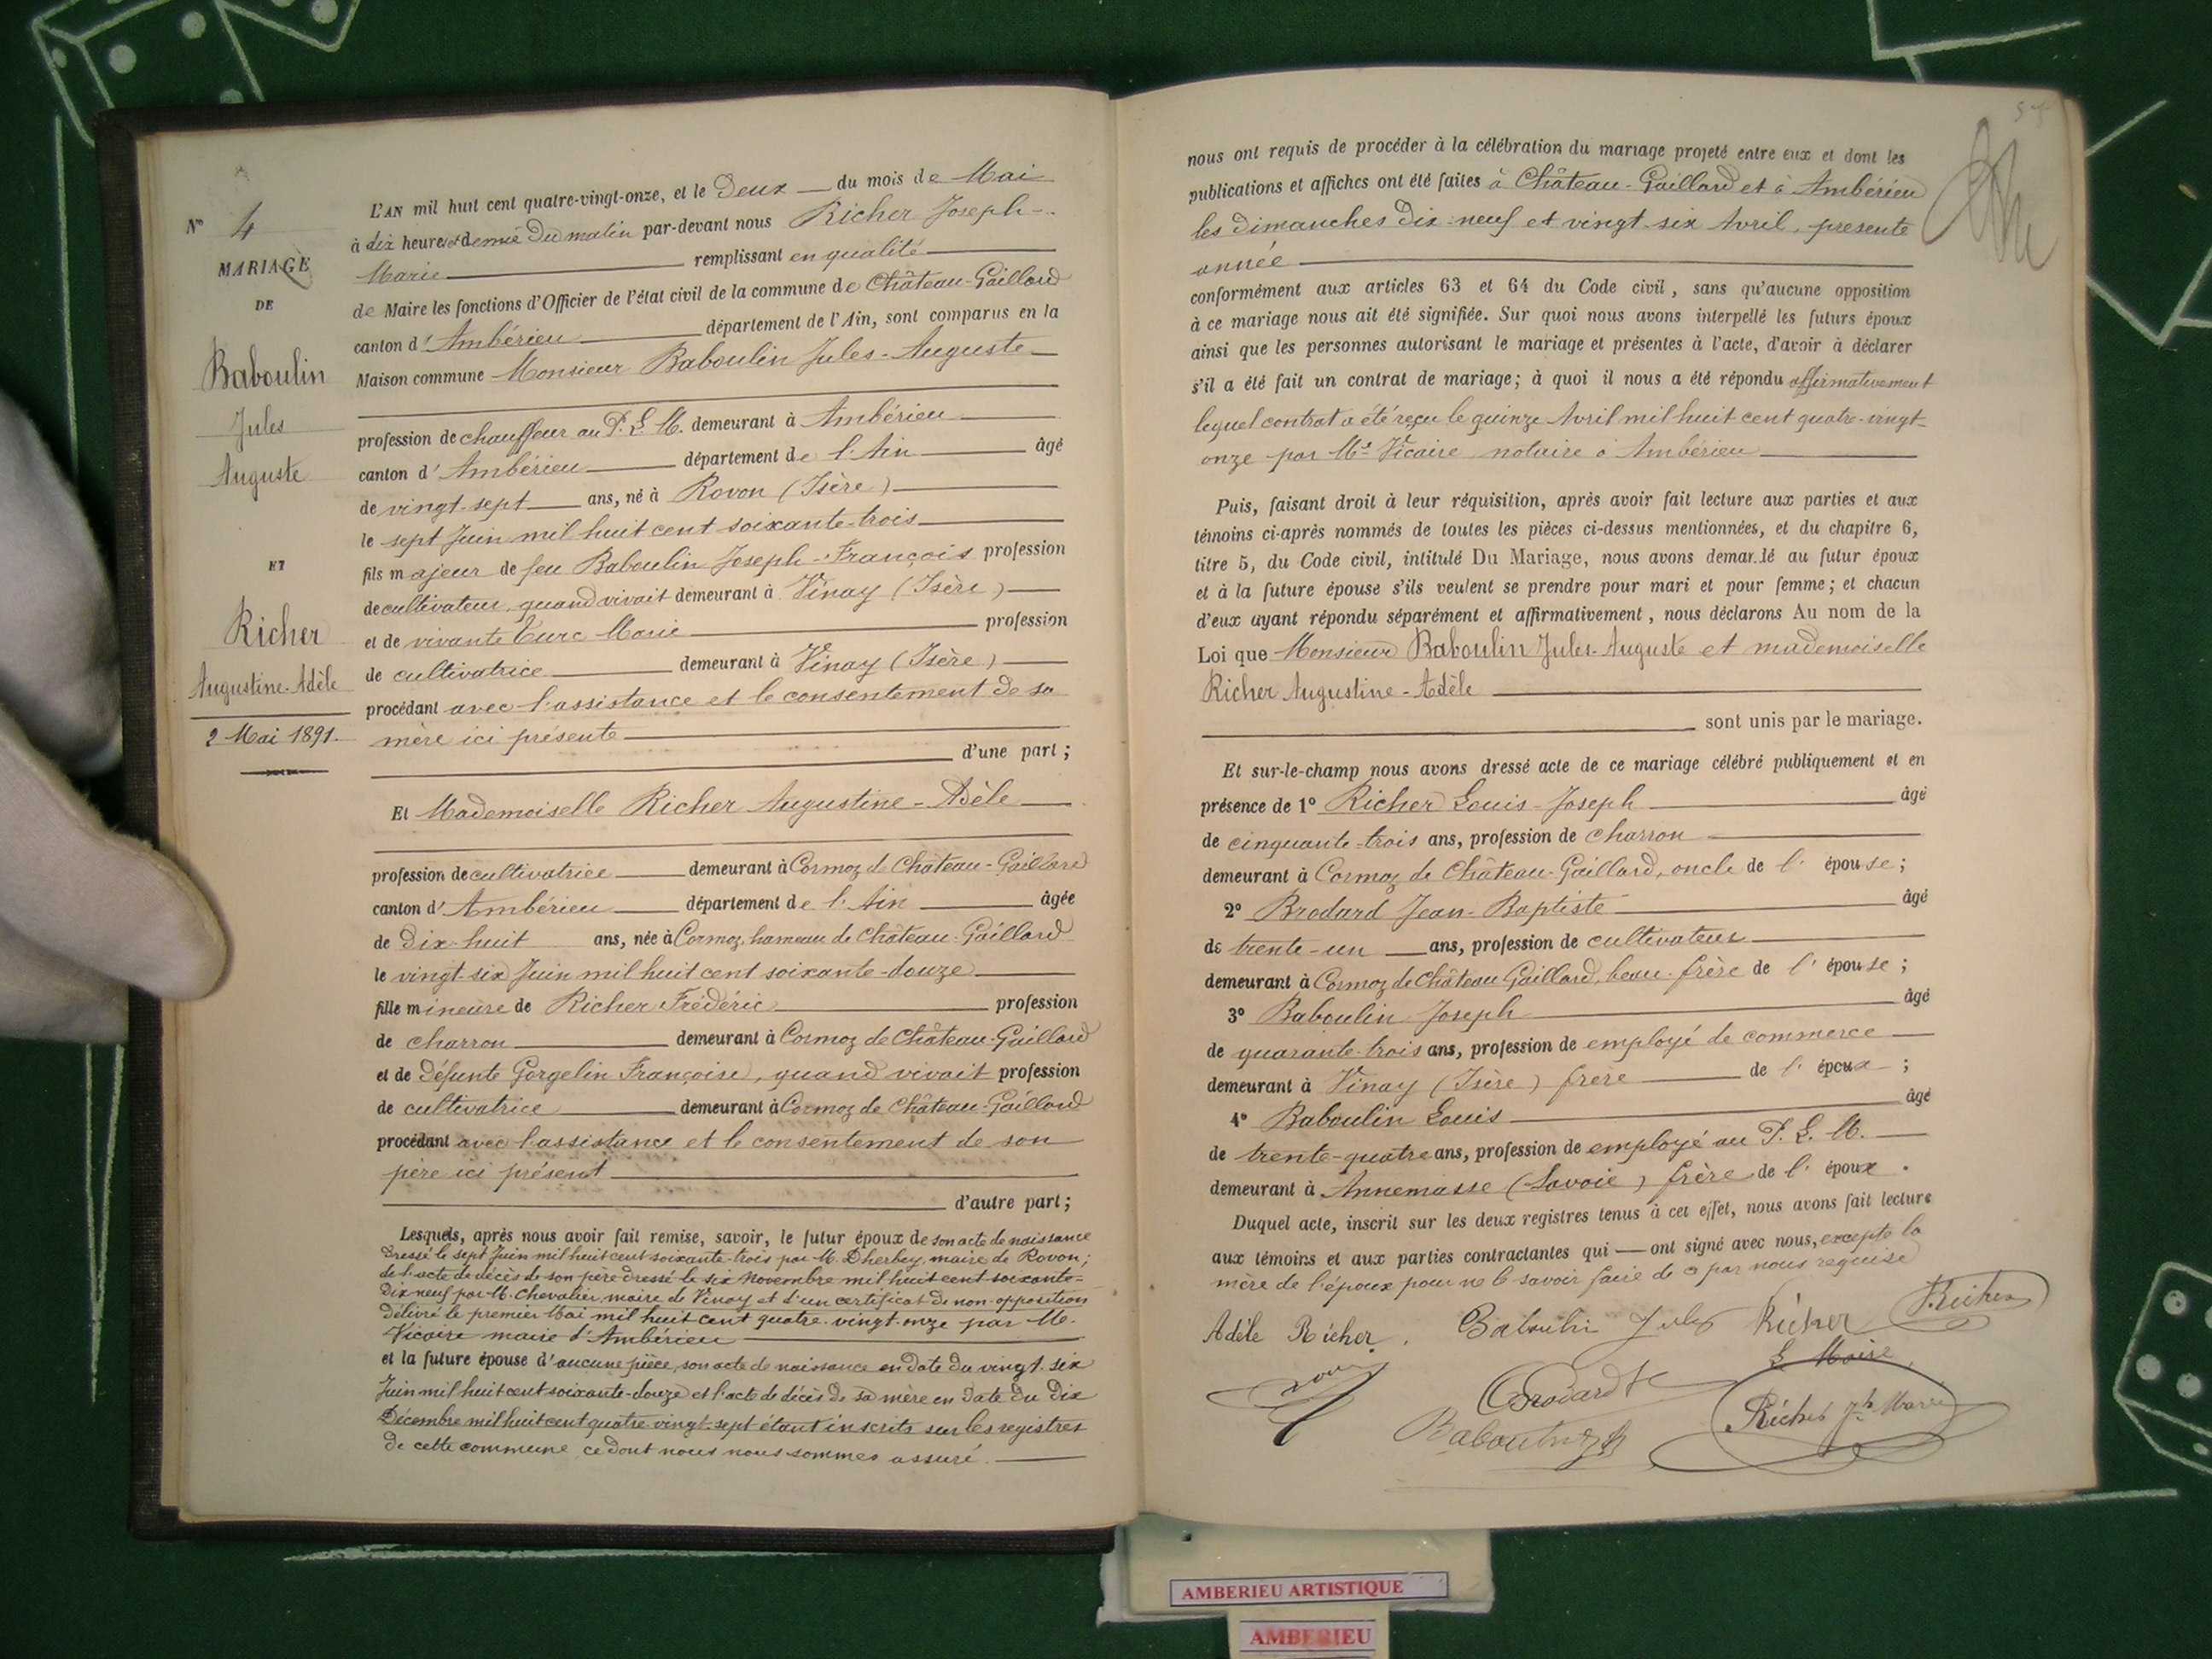 N° 4
MARIAGE
DE
Baboulin
Jules
Auguste
ET
Richer
Augustine-Adèle
2 Mai 1891.
L'AN mil huit cent quatre-vingt-onze, et le Deux du mois de Mai
à dix heures et demie du matin par-devant nous Richer Joseph-
Marie remplissant en qualité
de Maire les fonctions d'Officier de l'état civil de la commune de Château-Gaillard
canton d'Ambérieu département de l'Ain, sont comparus en la
Maison commune Monsieur Baboulin Jules-Auguste
profession de chauffeur au P. L. M. demeurant à Ambérieu
canton d'Ambérieu département de l'Ain âgé
de vingt-sept ans, né à Rovon (Isère)
le sept Juin mil huit cent soixante-trois
fils majeur de feu Baboulin Joseph-François profession
de cultivateur, quand vivait demeurant à Vinay (Isère)
et de vivante Eurc Marie profession
de cultivatrice demeurant à Vinay (Isère)
procédant avec l'assistance et le consentement de sa
mère ici présente
d'une part;
Et Mademoiselle Richer Augustine-Adèle
profession de cultivatrice demeurant à Cormoz de Château-Gaillard
canton d'Ambérieu département de l'Ain âgée
de Dix-huit ans, née à Cormoz, hameau de Château-Gaillard
le vingt-six Juin mil huit cent soixante-douze
fille mineure de Richer Frédéric profession
de charron demeurant à Cormoz de Château-Gaillard
et de Défunte Gorgelin Françoise, quand vivait profession
de cultivatrice demeurant à Cormoz de Château-Gaillard
procédant avec l'assistance et le consentement de son
père ici présent
d'autre part;
Lesquels, après nous avoir fait remise, savoir, le futur époux de son acte de naissance
dressé le sept Juin mil huit cent soixante-trois par M. Dherbey, maire de Rovon;
de l'acte de décès de son père dressé le six Novembre mil huit cent soixante-
Dix-neuf par M. Chevalier, maire de Vinay et d'un certificat de non-opposition
délivré le premier Mai mil huit cent quatre-vingt-onze par M.
Vicaire maire d'Ambérieu
et la future épouse d'aucune pièce, son acte de naissance en date du vingt-six
Juin mil huit cent soixante-douze et l'acte de décès de sa mère en date du Dix
Décembre mil huit cent quatre-vingt-sept étant inscrits sur les registres
de cette commune, ce dont nous nous sommes assuré.
nous ont requis de procéder à la célébration du mariage projeté entre eux et dont les
publications et affiches ont été faites à Château-Gaillard et à Ambérieu
les dimanches Dix-neuf et vingt-six Avril, présente
année
conformément aux articles 63 et 64 du Code civil, sans qu'aucune opposition
à ce mariage nous ait été signifiée. Sur quoi nous avons interpellé les futurs époux
ainsi que les personnes autorisant le mariage et présentes à l'acte, d'avoir à déclarer
s'il a été fait un contrat de mariage; à quoi il nous a été répondu affirmativement
lequel contrat a été reçu le quinze Avril mil huit cent quatre-vingt-
onze par Me Vicaire notaire à Ambérieu
Puis, faisant droit à leur réquisition, après avoir fait lecture aux parties et aux
témoins ci-après nommés de toutes les pièces ci-dessus mentionnées, et du chapitre 6,
titre 5, du Code civil, intitulé Du Mariage, nous avons demandé au futur époux
et à la future épouse s'ils veulent se prendre pour mari et pour femme; et chacun
d'eux ayant répondu séparément et affirmativement, nous déclarons Au nom de la
Loi que Monsieur Baboulin Jules-Auguste et mademoiselle
Richer Augustine-Adèle
sont unis par le mariage.
Et sur-le-champ nous avons dressé acte de ce mariage célébré publiquement et en
présence de 1° Richer Louis-Joseph âgé
de cinquante-trois ans, profession de charron
demeurant à Cormoz de Château-Gaillard, oncle de l'épouse;
2° Brodard Jean-Baptiste âgé
de trente-un ans, profession de cultivateur
demeurant à Cormoz de Château Gaillard, beau-frère de l'épouse;
3° Baboulin Joseph âgé
de quarante-trois ans, profession de employé de commerce
demeurant à Vinay (Isère) frère de l'époux;
4° Baboulin Louis âgé
de trente-quatre ans, profession de employé au P. L. M.
demeurant à Annemasse (Savoie) frère de l'époux.
Duquel acte, inscrit sur les deux registres tenus à cet effet, nous avons fait lecture
aux témoins et aux parties contractantes qui ont signé avec nous, excepté la
mère de l'époux pour ne le savoir faire de ce par nous requise
Adèle Richer. Baboulin Jules Richer Richer
Le Maire,
Brodard
Baboulin Jh
Richer Jh Marie
AMBERIEU ARTISTIQUE
AMBERIEU